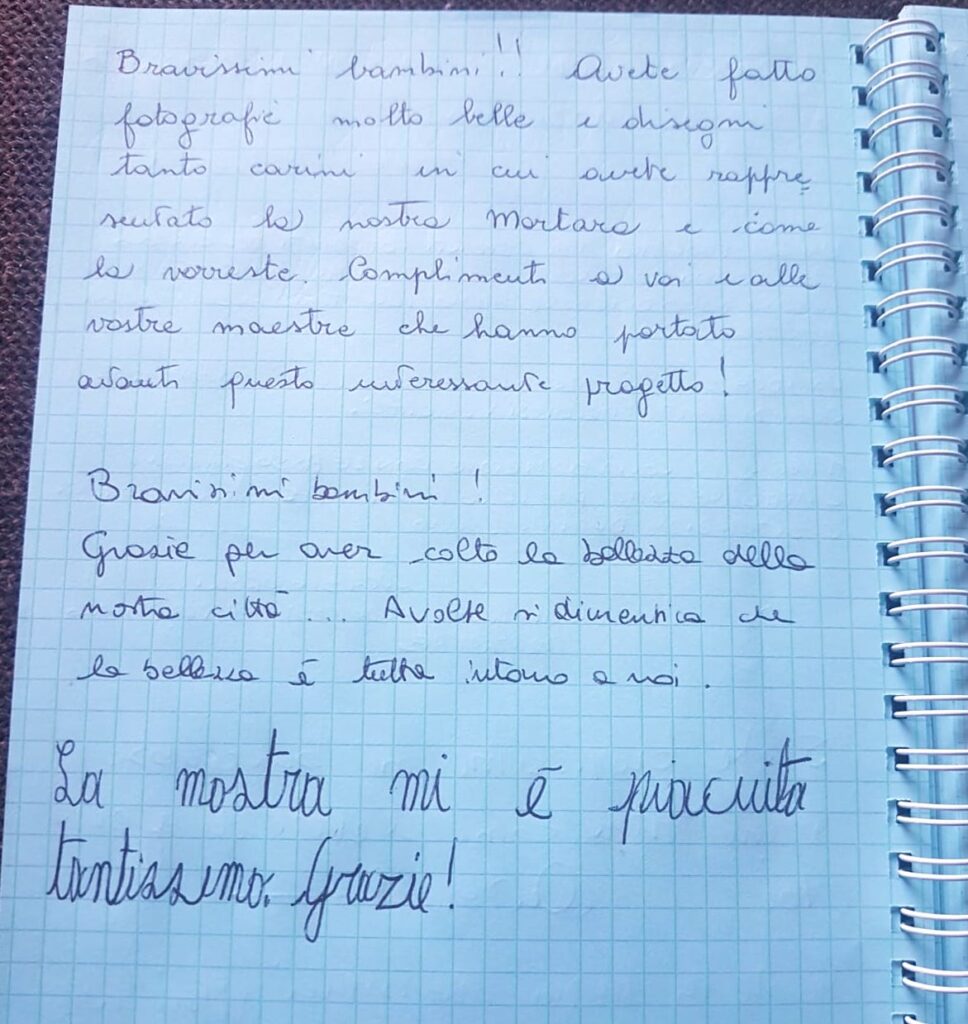 Bravissimi bambini!! Avete fatto
fotografie molto belle e disegni
tanto carini in cui avete rappre
sentato la nostra Mortara e come
la vorreste. Complimenti a voi e alle
vostre maestre che hanno portato
avanti questo interessante progetto!
Bravissimi bambini!
Grazie per aver colto la bellezza della
nostra città... A volte si dimentica che
la bellezza è tutta intorno a noi.
La mostra mi è piaciuta
tantissimo. Grazie!